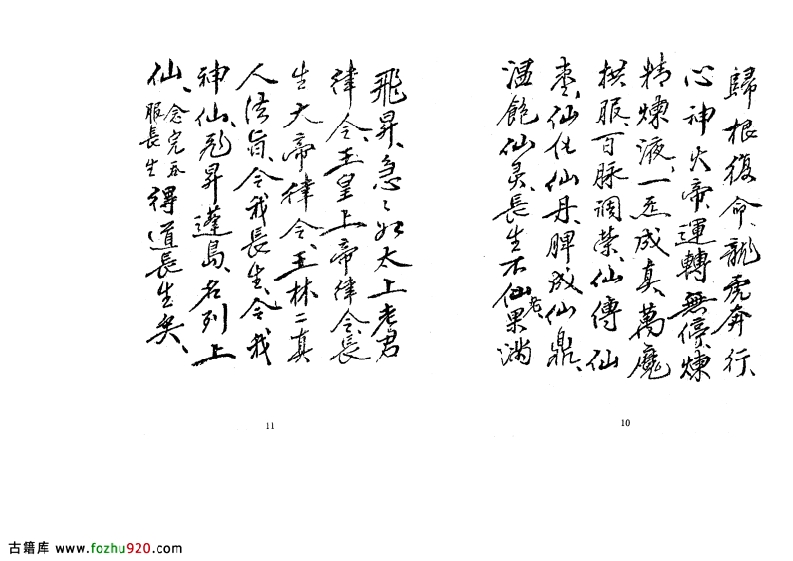 歸根復命、龍虎奔行、
心神火帝、運轉無停、煉
精煉液、一炁成真、萬魔
拱服、百脉調榮、仙傳仙
棗、仙化仙丹、脾成仙鼎、
温飽仙灵、長生不老、仙果滿
10
飛昇、急〻如太上老君
律令、玉皇上帝律令、長
生大帝律令、玉林二真
人法旨、令我長生、令我
神仙、飛昇蓬島、名列上
仙、念完吞服長生得道長生矣、
11
古籍库 www.fozhu920.com